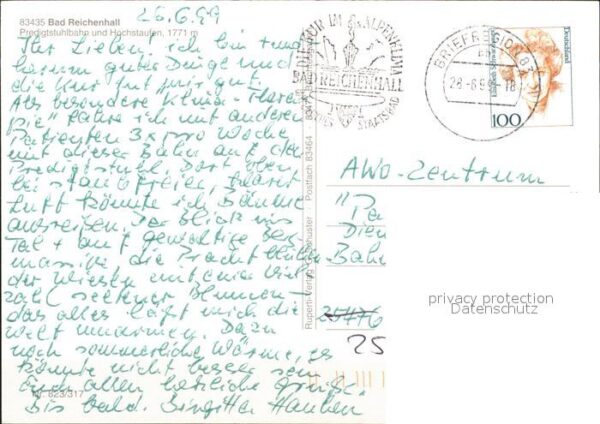 26.6.99
83435 Bad Reichenhall
Predigtstuhlbahn und Hochstaufen, 1771 m
Ihr Lieben! ich bin rund
herum guter Dinge und
die Kur tut mir gut.
Als besondere Klima-Thera-
pie" fahre ich mit anderen
Patienten 3x pro Woche
mit dieser Bahn auf den
Predigtstuhl. Dort oben
bei staubfreier, klarer
Luft könnte ich Bäume
ausreißen. Der Blick ins
Tal + auf gewaltige Berg-
massive die Pracht
der Wiesen mit einer Viel-
zahl seltener Blumen -
das alles läßt mich die
Welt umarmen. Dazu
noch sommerliche Wärme, es
könnte nicht besser sein.
Euch allen herzliche Grüße.
Bis bald. Birgitta
Nr. 823/317
Ruperti-Verlag
Postfach 83464
KUR IM ALPENKLIMA
BAD REICHENHALL
STAATSBAD
BRIEFREGION 83
26-6.99-18
Deutschland
100
AWO-Zentrum
"Pa
Dien
Bahn
25476
25
privacy protection
Datenschutz